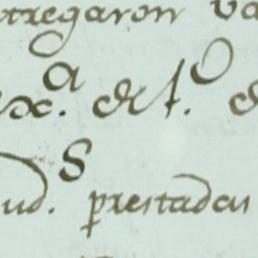 tregaron va
xᵃ. del f.ᵒ
ud.ˢ prestadas